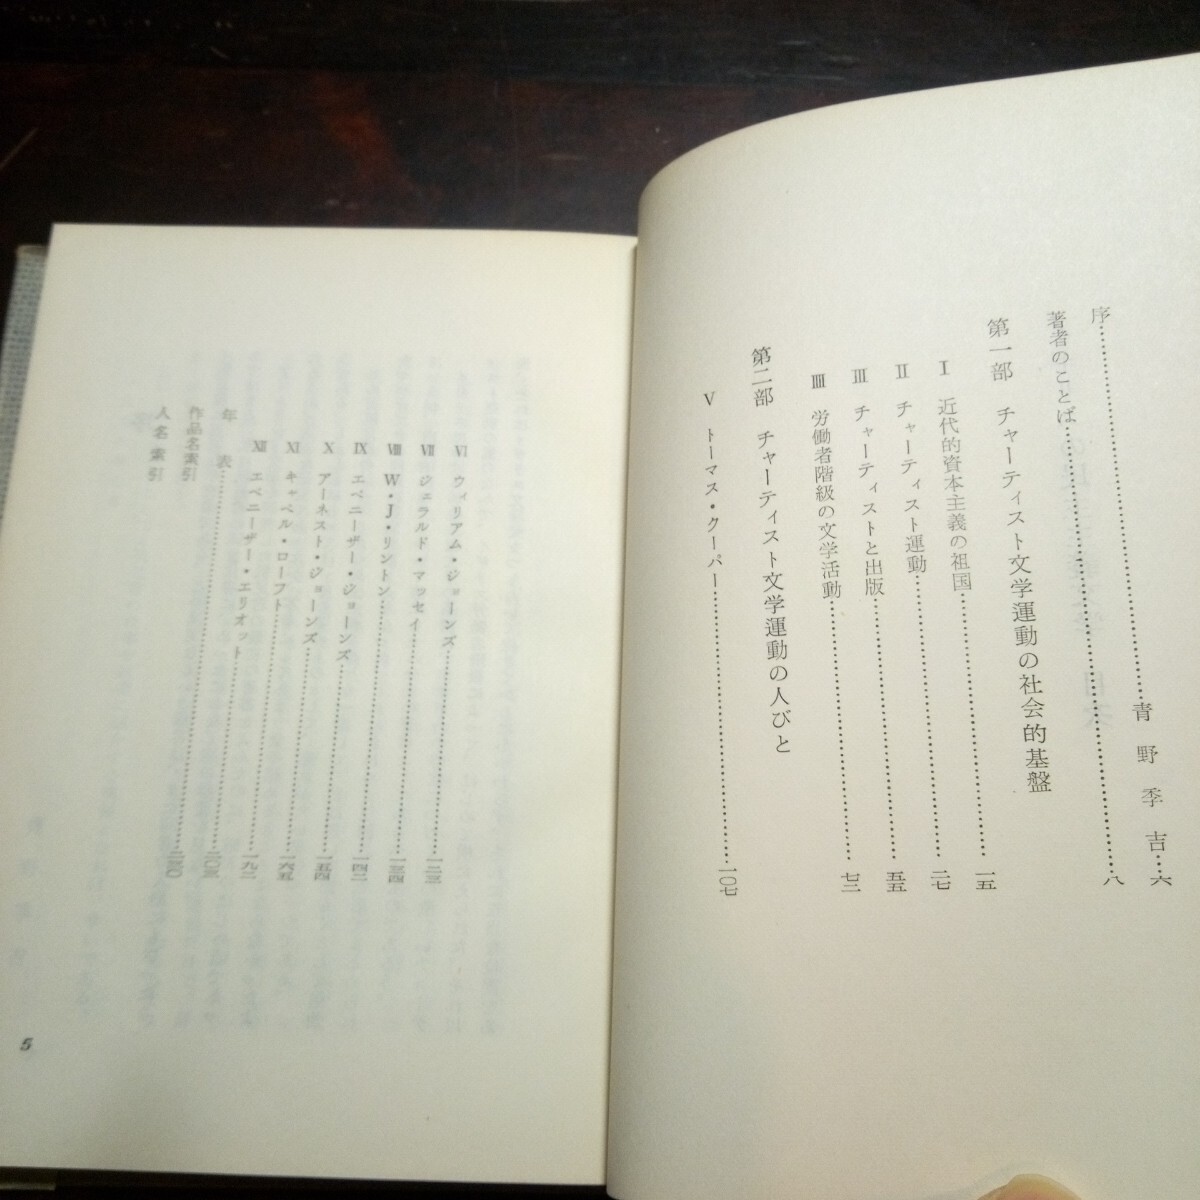 序……青野季吉…六
著者のことば……八
第一部　チャーティスト文学運動の社会的基盤
Ⅰ　近代的資本主義の祖国……一五
Ⅱ　チャーティスト運動……二七
Ⅲ　チャーティストと出版……五五
ⅠⅠⅠⅠ　労働者階級の文学活動……七三
第二部　チャーティスト文学運動の人びと
Ⅴ　トーマス・クーパー……一〇七
Ⅵ　ウィリアム・ジョーンズ
Ⅶ　ジェラルド・マッセイ……一二三
Ⅷ　W・J・リントン……一三四
Ⅸ　エベニーザー・ジョーンズ……一四二
Ⅹ　アーネスト・ジョーンズ……一五四
Ⅺ　キャペル・ローフト……一六五
Ⅻ　エベニーザー・エリオット……一九二
年表……二〇三
作品名索引
人名索引……二三〇
5